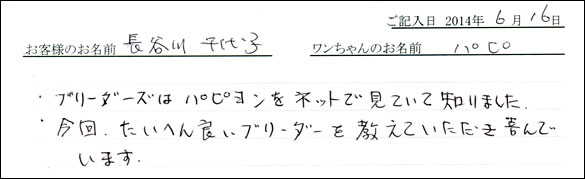 ご記入日 2014年 6月 16日
お客様のお名前 長谷川 千代子 ワンちゃんのお名前 パピ
・ブリーダーズはパピヨンをネットで見ていて知りました.
・今回.たいへん良いブリーダーを教えていただき喜んで
います.